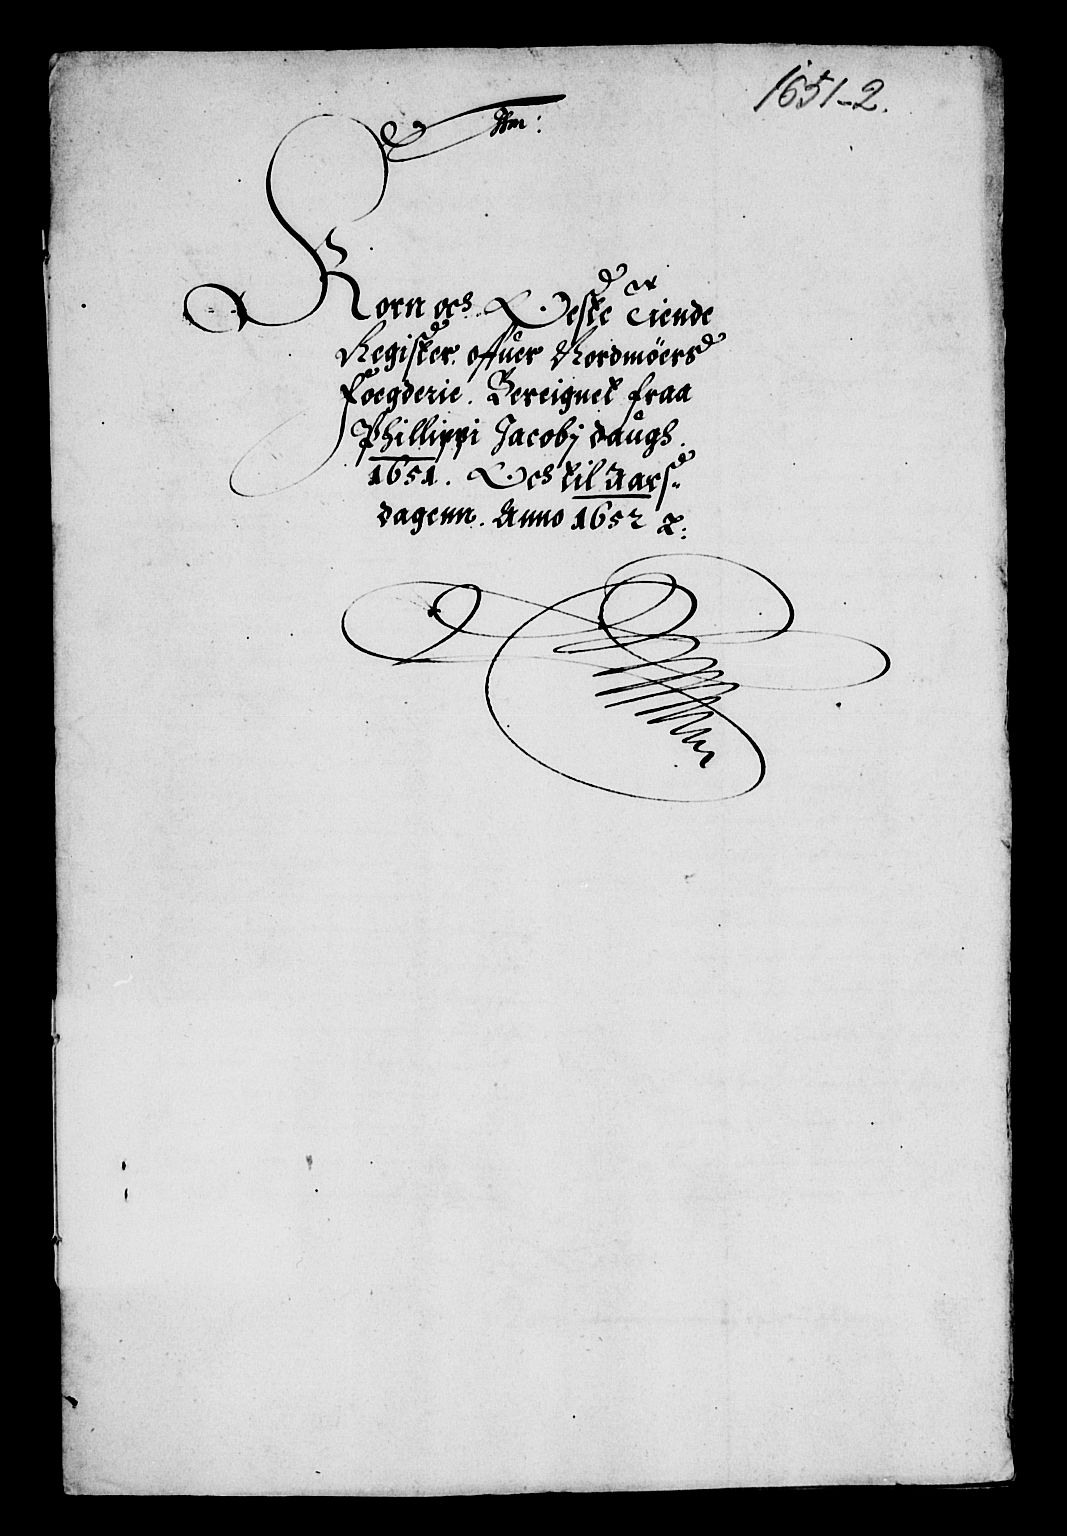 1651-2.
Korn och Oeste Tiende
Register offuer Nordmöers
Foegderie. Bereignet fraa
Phillippi Jacobj daugh.
1651. Och til Aars
dagenn. Anno 1652